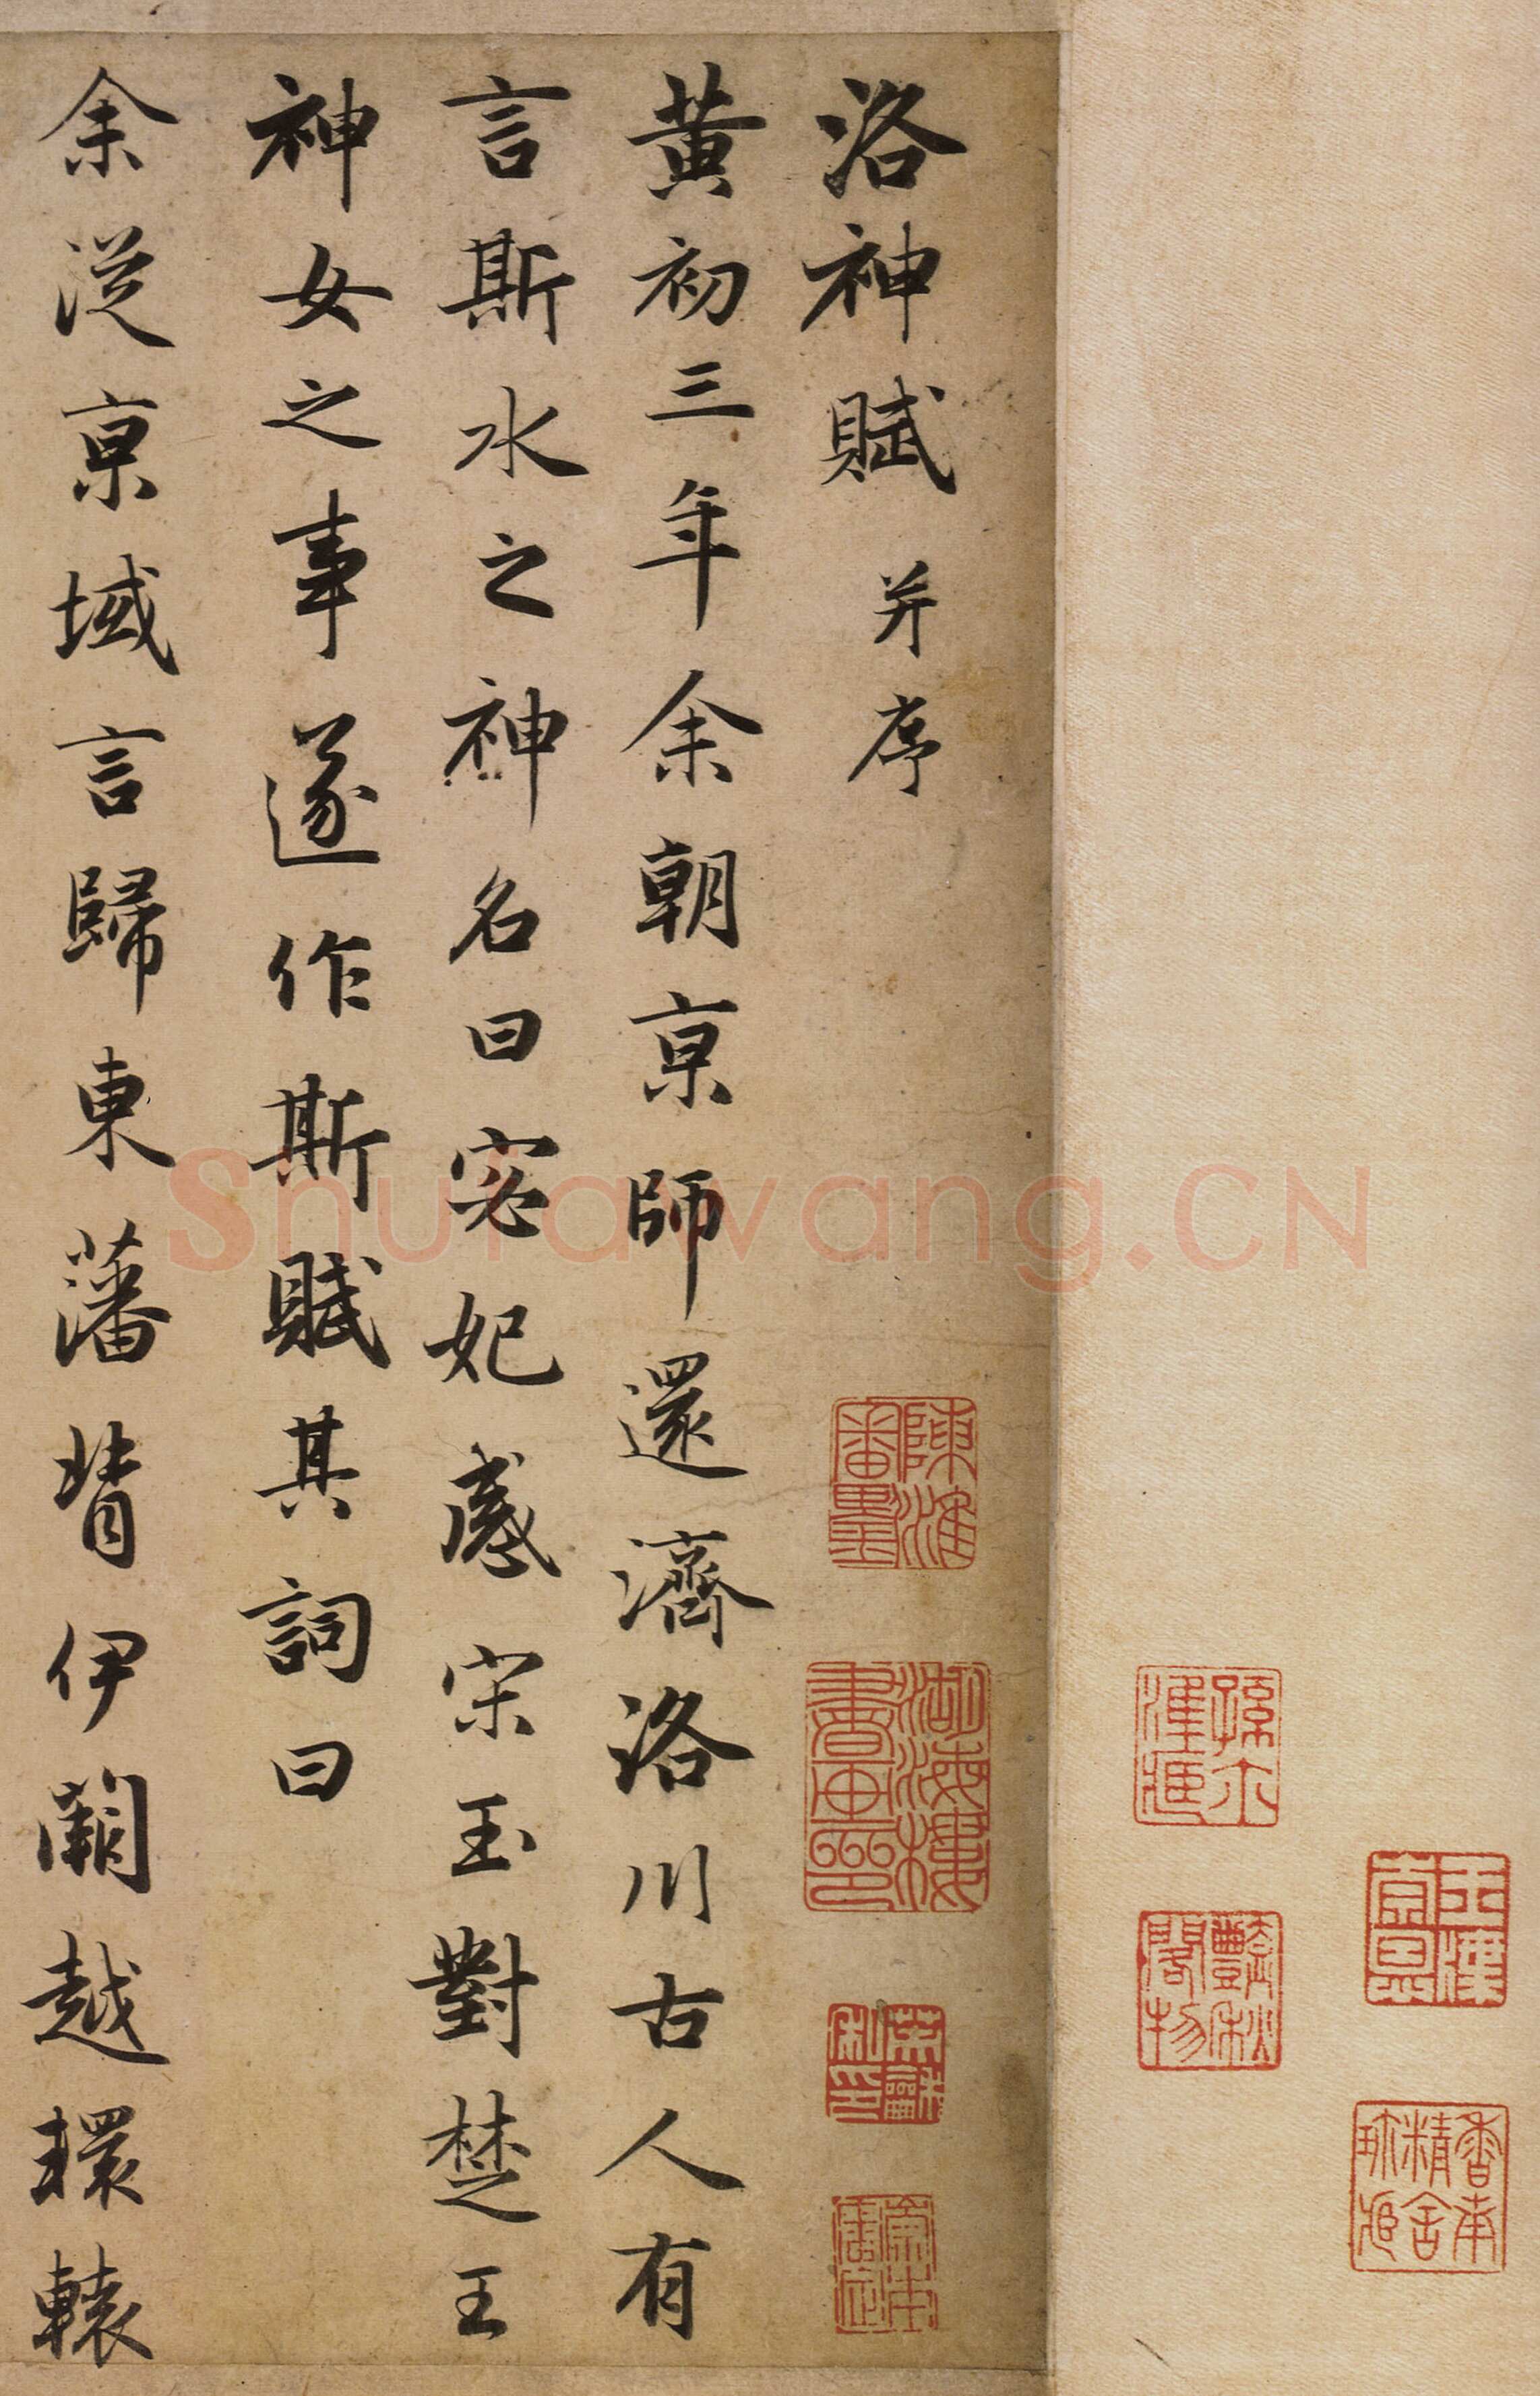 洛神賦 并序
黄初三年余朝京師還濟洛川古人有
言斯水之神名曰宓妃感宋玉對楚王
神女之事遂作斯賦其詞曰
余從京域言歸東藩背伊闕越轘轅
Shufawang.CN